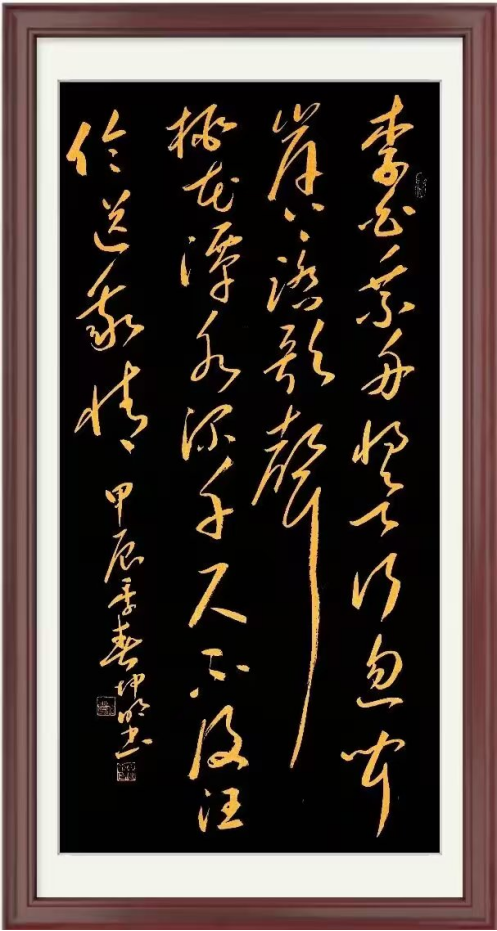 李白乘舟將欲行忽聞
岸上踏歌聲
桃花潭水深千尺不及汪
倫送我情
甲辰季春坤明書